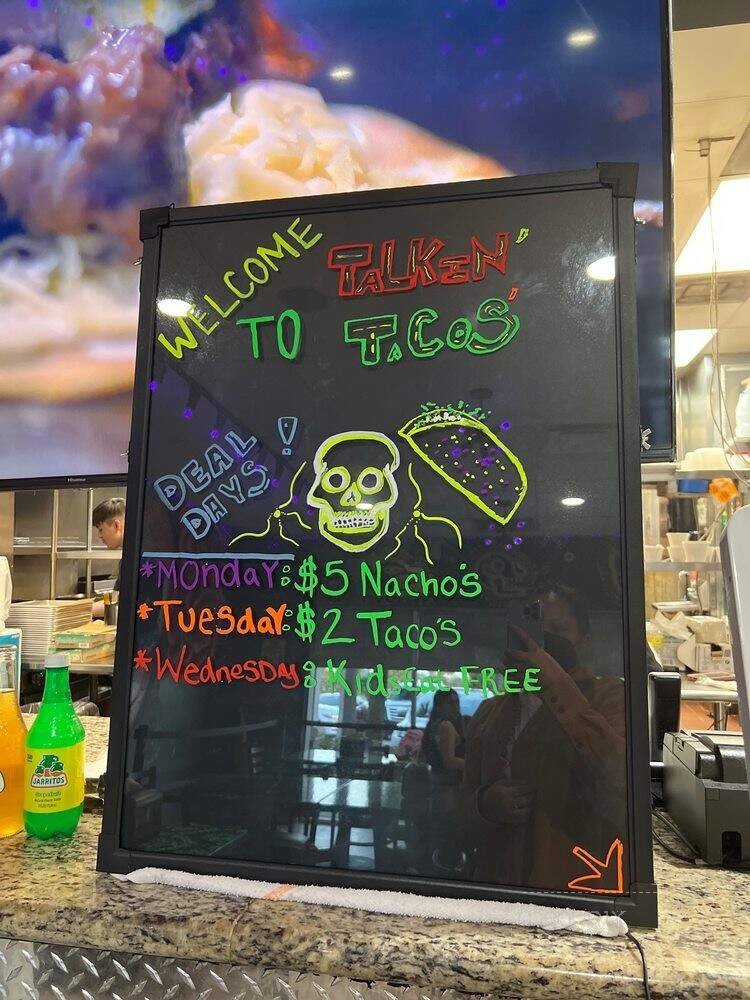 WELCOME
TO
TALKIN'
TACOS'
DEAL
DAYS!
*Monday: $5 Nacho's
*Tuesday: $2 Taco's
*Wednesday: Kids Eat FREE
JARRITOS
Hisense